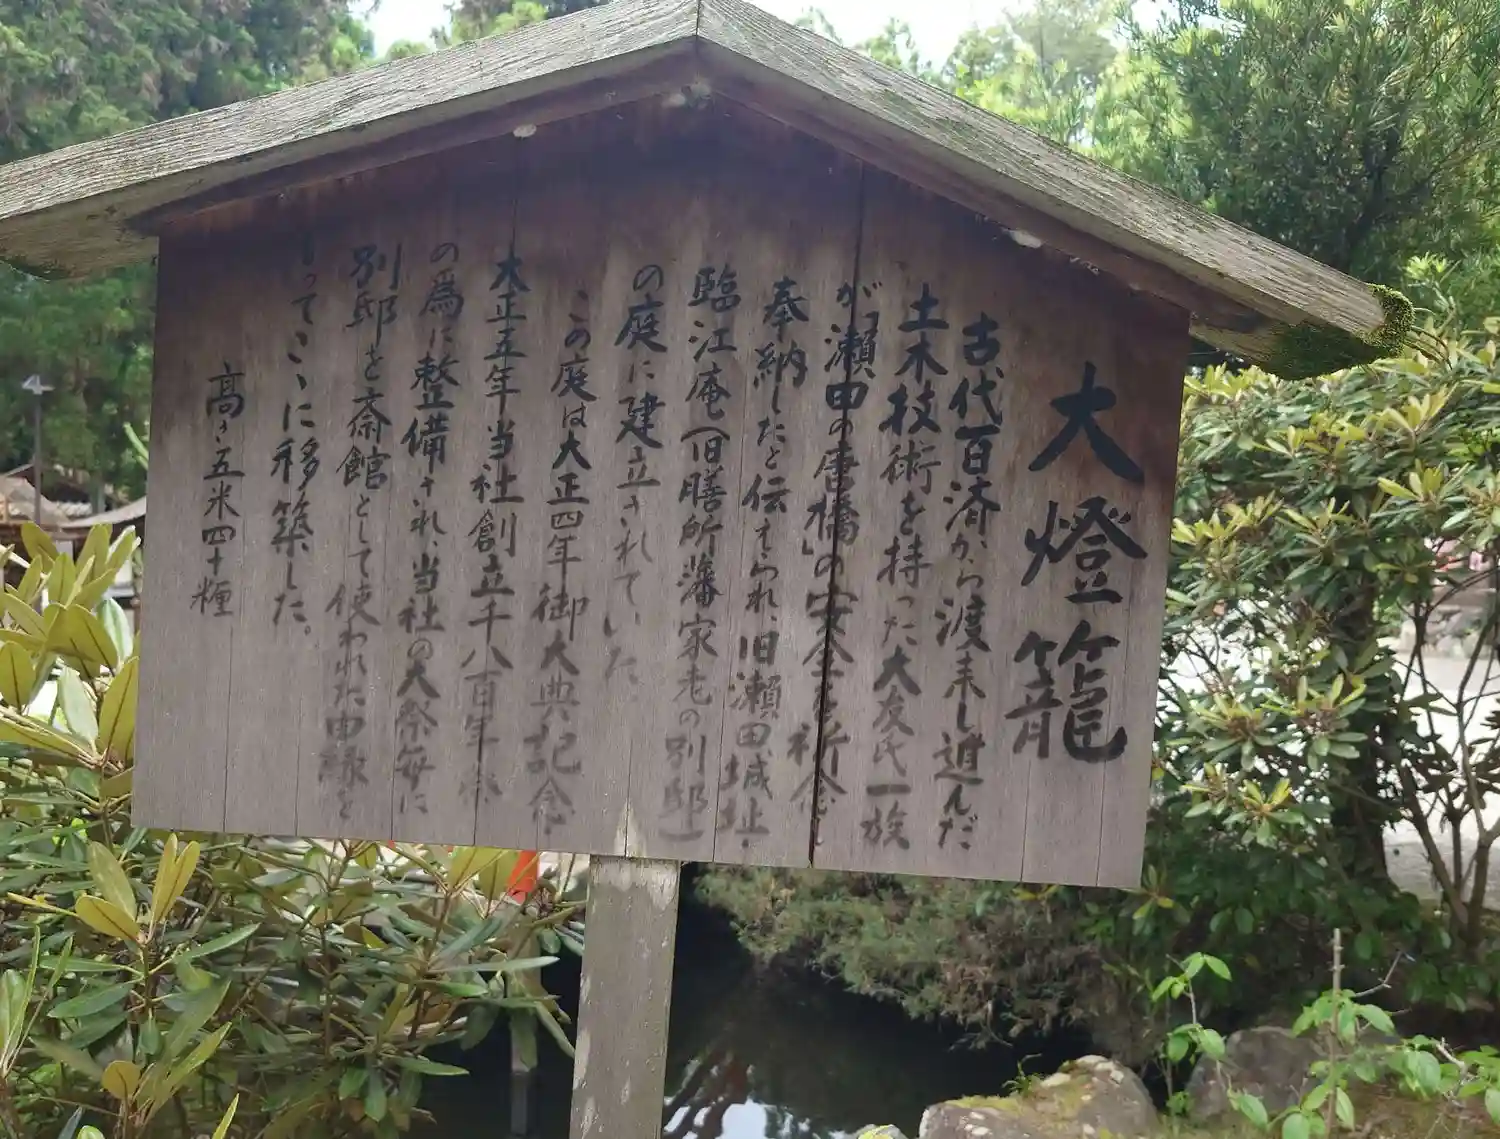 大燈籠
古代百済から渡来し進んだ
土木技術を持った大友氏一族
が「瀬田の唐橋」の安全を祈念し
奉納したと伝えられ、旧瀬田城址・
臨江庵(旧膳所藩家老の別邸)
の庭に建立されていた。
この庭は大正四年御大典記念・
大正五年当社創立千八百年祭
の為に整備され、当社の大祭毎に
別邸を斎館として使われた由縁を
もってここに移築した。
高さ五米四十糎